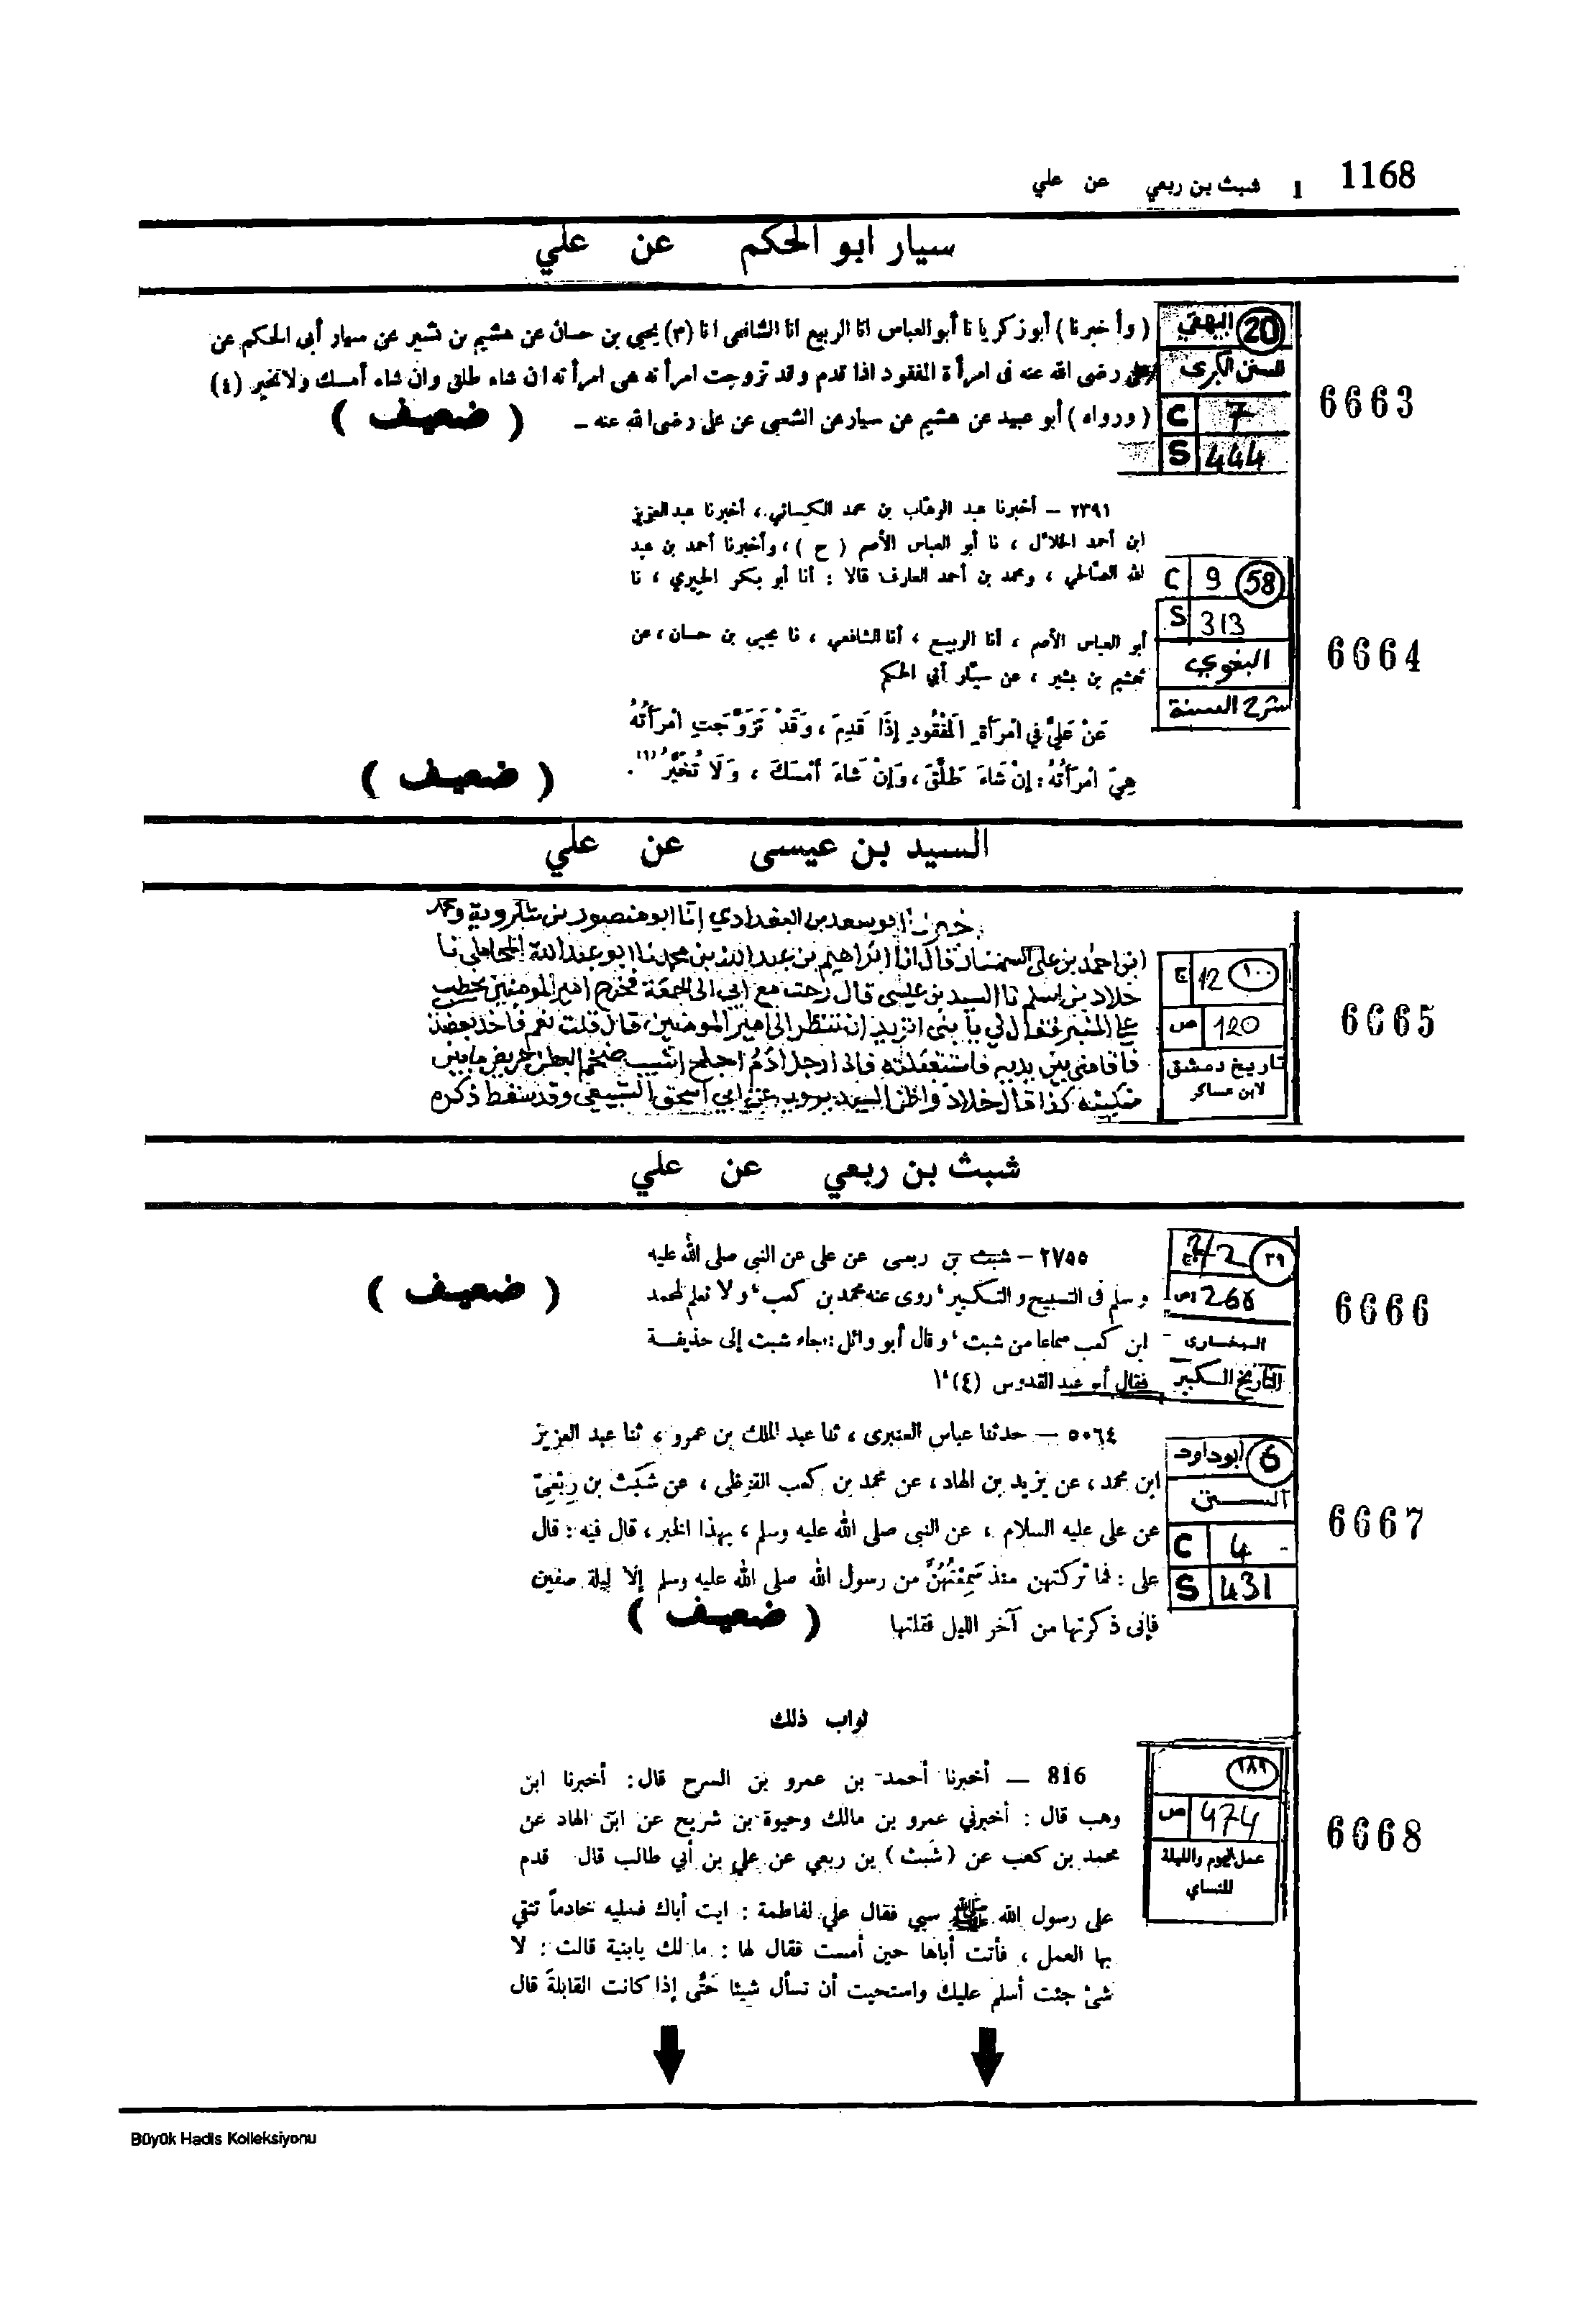 1168 1 شبث بن ربعي عن علي
سيار ابو الحكم عن علي
20 البيهقي
السنن الكبرى
C 7
S 444
6663
( وأخبرنا ) أبو زكريا نا أبو العباس انا الربيع انا الشافعي انا (٣) يحيى بن حسان عن هشيم بن بشير عن سيار أبى الحكم عن
على رضى الله عنه فى امرأة المفقود اذا قدم وقد تزوجت امرأته هى امرأته ان شاء طلق وان شاء أمسك ولا تخير (٤)
( ورواه ) أبو عبيد عن هشيم عن سيار عن الشعبى عن على رضى الله عنه –
( ضعيف )
C 9 58
S 313
البغوي
شرح السنة
6664
٢٣٩١ – أخبرنا عبد الوهّاب بن محمد الكسائي ، أخبرنا عبد العزيز
ابن أحمد الخلال ، نا أبو العباس الأصم ( ح ) ، وأخبرنا أحمد بن عبد
الله الصّالحي ، ومحمد بن أحمد العارف قالا : أنا أبو بكر الحيري ، نا
أبو العباس الأصم ، أنا الربيع ، أنا الشافعي ، نا يحيى بن حسان ، عن
هشيم بن بشير ، عن سيّار أبي الحكم
عَنْ عَلِيٍّ في امْرَأَةِ المَفْقُودِ إِذَا قَدِمَ ، وَقَدْ تَزَوَّجَتِ امْرَأَتُهُ
هِيَ امْرَأَتُهُ : إِنْ شَاءَ طَلَّقَ ، وَإِنْ شَاءَ أَمْسَكَ ، وَلَا تُخَيَّرُ (١) .
( ضعيف )
السيد بن عيسى عن علي
ج 12 ١٠٠
ص 120
تاريخ دمشق
لابن عساكر
6665
ابو سعد بن البغدادي انا ابو منصور بن شكرويه ومحمد
ابن احمد بن علي السمسار قال انا ابراهيم بن عبد الله بن محمد نا ابو عبد الله المحاملي نا
خلاد بن اسلم نا السيد بن عيسى قال رحت مع ابي الى الجمعة فخرج امير المومنين يخطب
على المنبر فقال لي يا بني اتريد ان تنظر الى امير المومنين قال قلت نعم فاخذ بعضدي
فاقامني بين يديه فاذا رجل ادم اجلح اشيب ضخم البطن عريض ما بين
منكبيه كذا قال خلاد واظن السيد يرويه عن ابي اسحق السبيعي وقد سقط ذكره
شبث بن ربعي عن علي
ج 2/2 ٢٩
ص 266
البخارى
التاريخ الكبير
6666
٢٧٥٥ – شبث بن ربعى عن على عن النبى صلى الله عليه
وسلم فى التسبيح والتكبير ، روى عنه محمد بن كعب ، ولا نعلم لمحمد
ابن كعب سماعا من شبث ، وقال أبو وائل : جاء شبث إلى حذيفة
فقال أبو عبد القدوس (٤)
( ضعيف )
أبو داود 6
السنن
C 4
S 431
6667
٥٠٦٤ — حدثنا عباس العنبرى ، ثنا عبد الملك بن عمرو ، ثنا عبد العزيز
ابن محمد ، عن يزيد بن الهاد ، عن محمد بن كعب القرظى ، عن شَبَث بن رِبْعِىّ
عن على عليه السلام ، عن النبى صلى الله عليه وسلم ، بهذا الخبر ، قال فيه : قال
على : فما تركتهن منذ سَمِعْتُهُنَّ من رسول الله صلى الله عليه وسلم إلا ليلة صفين
فإنى ذكرتها من آخر الليل فقلتها
( ضعيف )
ثواب ذلك
١٨٩
ص 474
عمل اليوم والليلة
للنساي
6668
816 — أخبرنا أحمد بن عمرو بن السرح قال : أخبرنا ابن
وهب قال : أخبرني عمرو بن مالك وحيوة بن شريح عن ابن الهاد عن
محمد بن كعب عن ( شَبث ) بن ربعي عن علي بن أبي طالب قال قدم
على رسول الله ﷺ سبي فقال علي لفاطمة : ايت أباك فسليه خادماً تتقي
بها العمل ، فأتت أباها حين أمست فقال لها : ما لك يابنية قالت : لا
شئ جئت أسلم عليك واستحيت أن تسأل شيئا حَتَّى إذا كانت القابلة قال
Büyük Hadis Kolleksiyonu